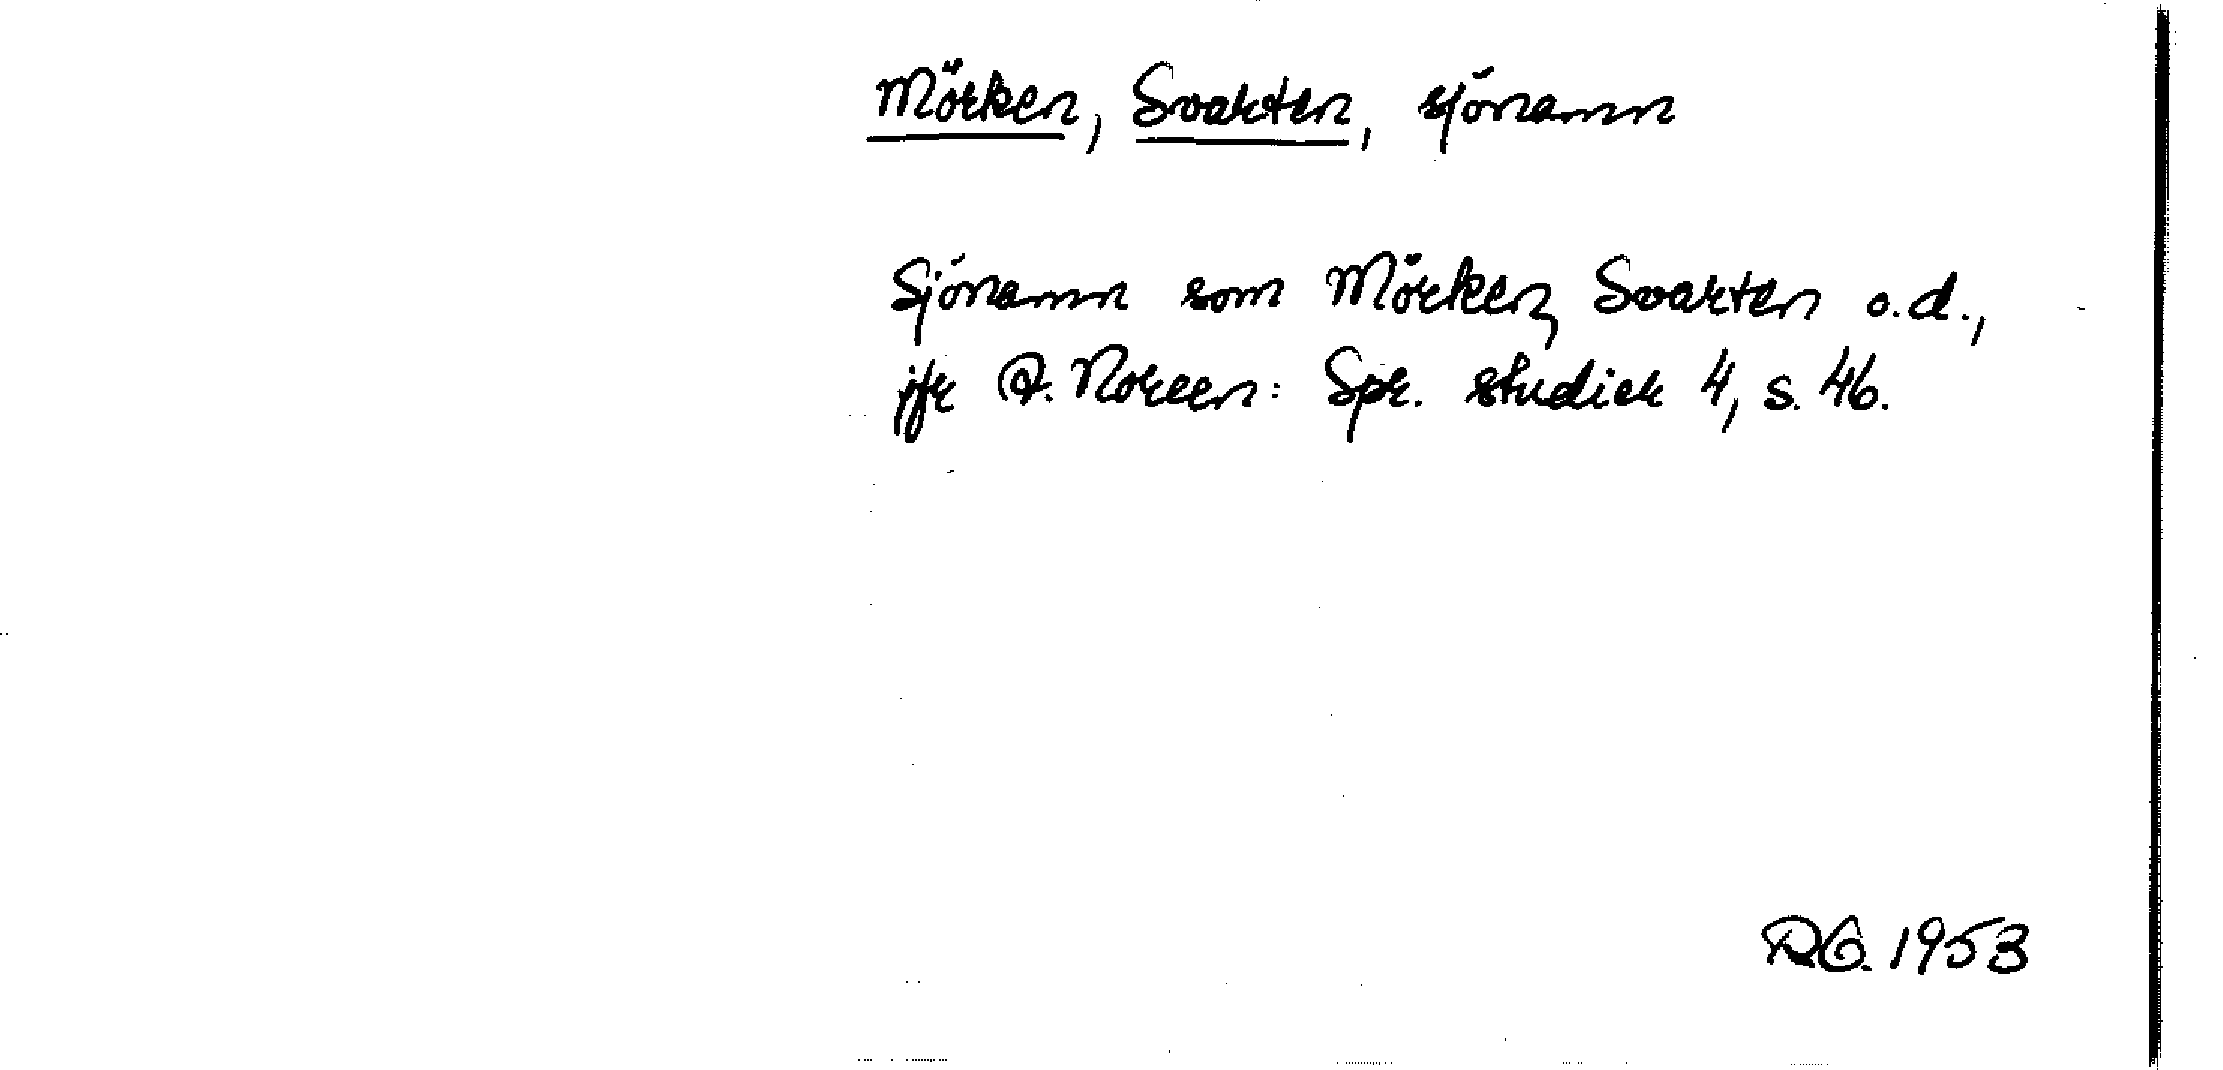 Mörken, Svarten, sjönamn
Sjönamn som Mörken, Svarten o.d.,
jfr A. Noreen: Spr. studier 4, s. 46.
RG. 1953